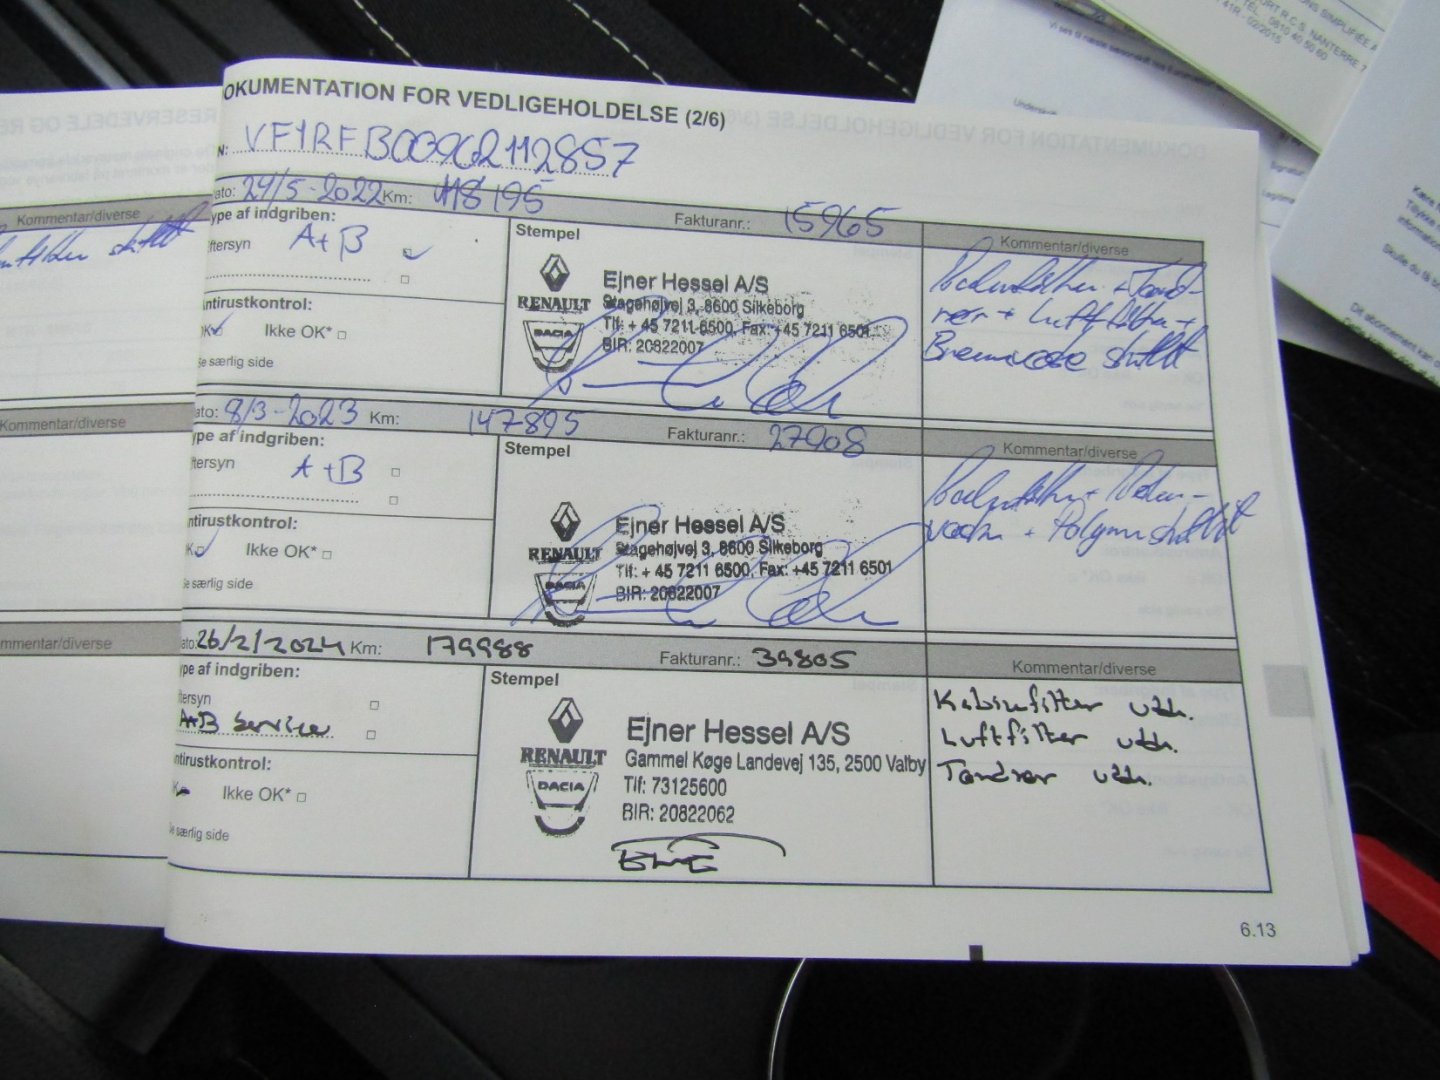 ORT R.C.S. NANTERRE 7
TÉL.: 0810 40 50 60
41R - 02/2015
OKUMENTATION FOR VEDLIGEHOLDELSE (2/6)
N: VF1RFB00962112857
ato: 24/5-2022 Km: 118195 Fakturanr.: 15965
ype af indgriben:
ftersyn A+B
ntirustkontrol:
Ikke OK*
e særlig side
Stempel
Ejner Hessel A/S
RENAULT Stagehøjvej 3, 8600 Silkeborg
DACIA Tlf: + 45 7211 6500, Fax: +45 7211 6501
BIR: 20822007
Kommentar/diverse
+ Tænd-
rør + Luftfilter +
Bremsevæske skiftet
ato: 8/3-2023 Km: 147895 Fakturanr.: 27908
ype af indgriben:
ftersyn A+B
ntirustkontrol:
Ikke OK*
e særlig side
Stempel
Ejner Hessel A/S
RENAULT Stagehøjvej 3, 8600 Silkeborg
DACIA Tlf: + 45 7211 6500, Fax: +45 7211 6501
BIR: 20822007
Kommentar/diverse
ato: 26/2/2024 Km: 179988 Fakturanr.: 39805
ype af indgriben:
ersyn
A+B Service
ntirustkontrol:
Ikke OK*
e særlig side
Stempel
Ejner Hessel A/S
RENAULT Gammel Køge Landevej 135, 2500 Valby
DACIA Tlf: 73125600
BIR: 20822062
Kommentar/diverse
Kabinefilter udsk.
Luftfilter udsk.
Tændrør udsk.
6.13
Kommentar/diverse
skiftet
Kommentar/diverse
mmentar/diverse